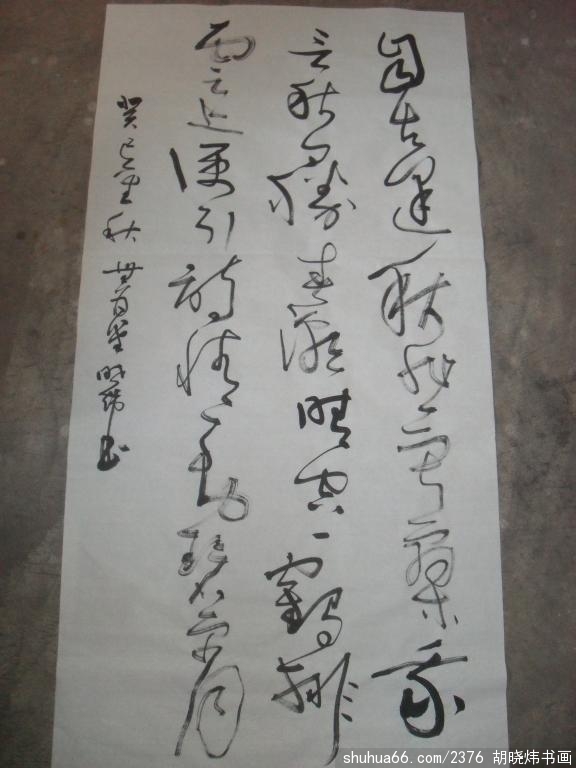 自古逢秋悲寂寥我
言秋日勝春潮晴空一鶴排
雲上便引詩情到碧霄
癸巳秋 堂曉煒书
shuhua66.com/2376 胡晓炜书画